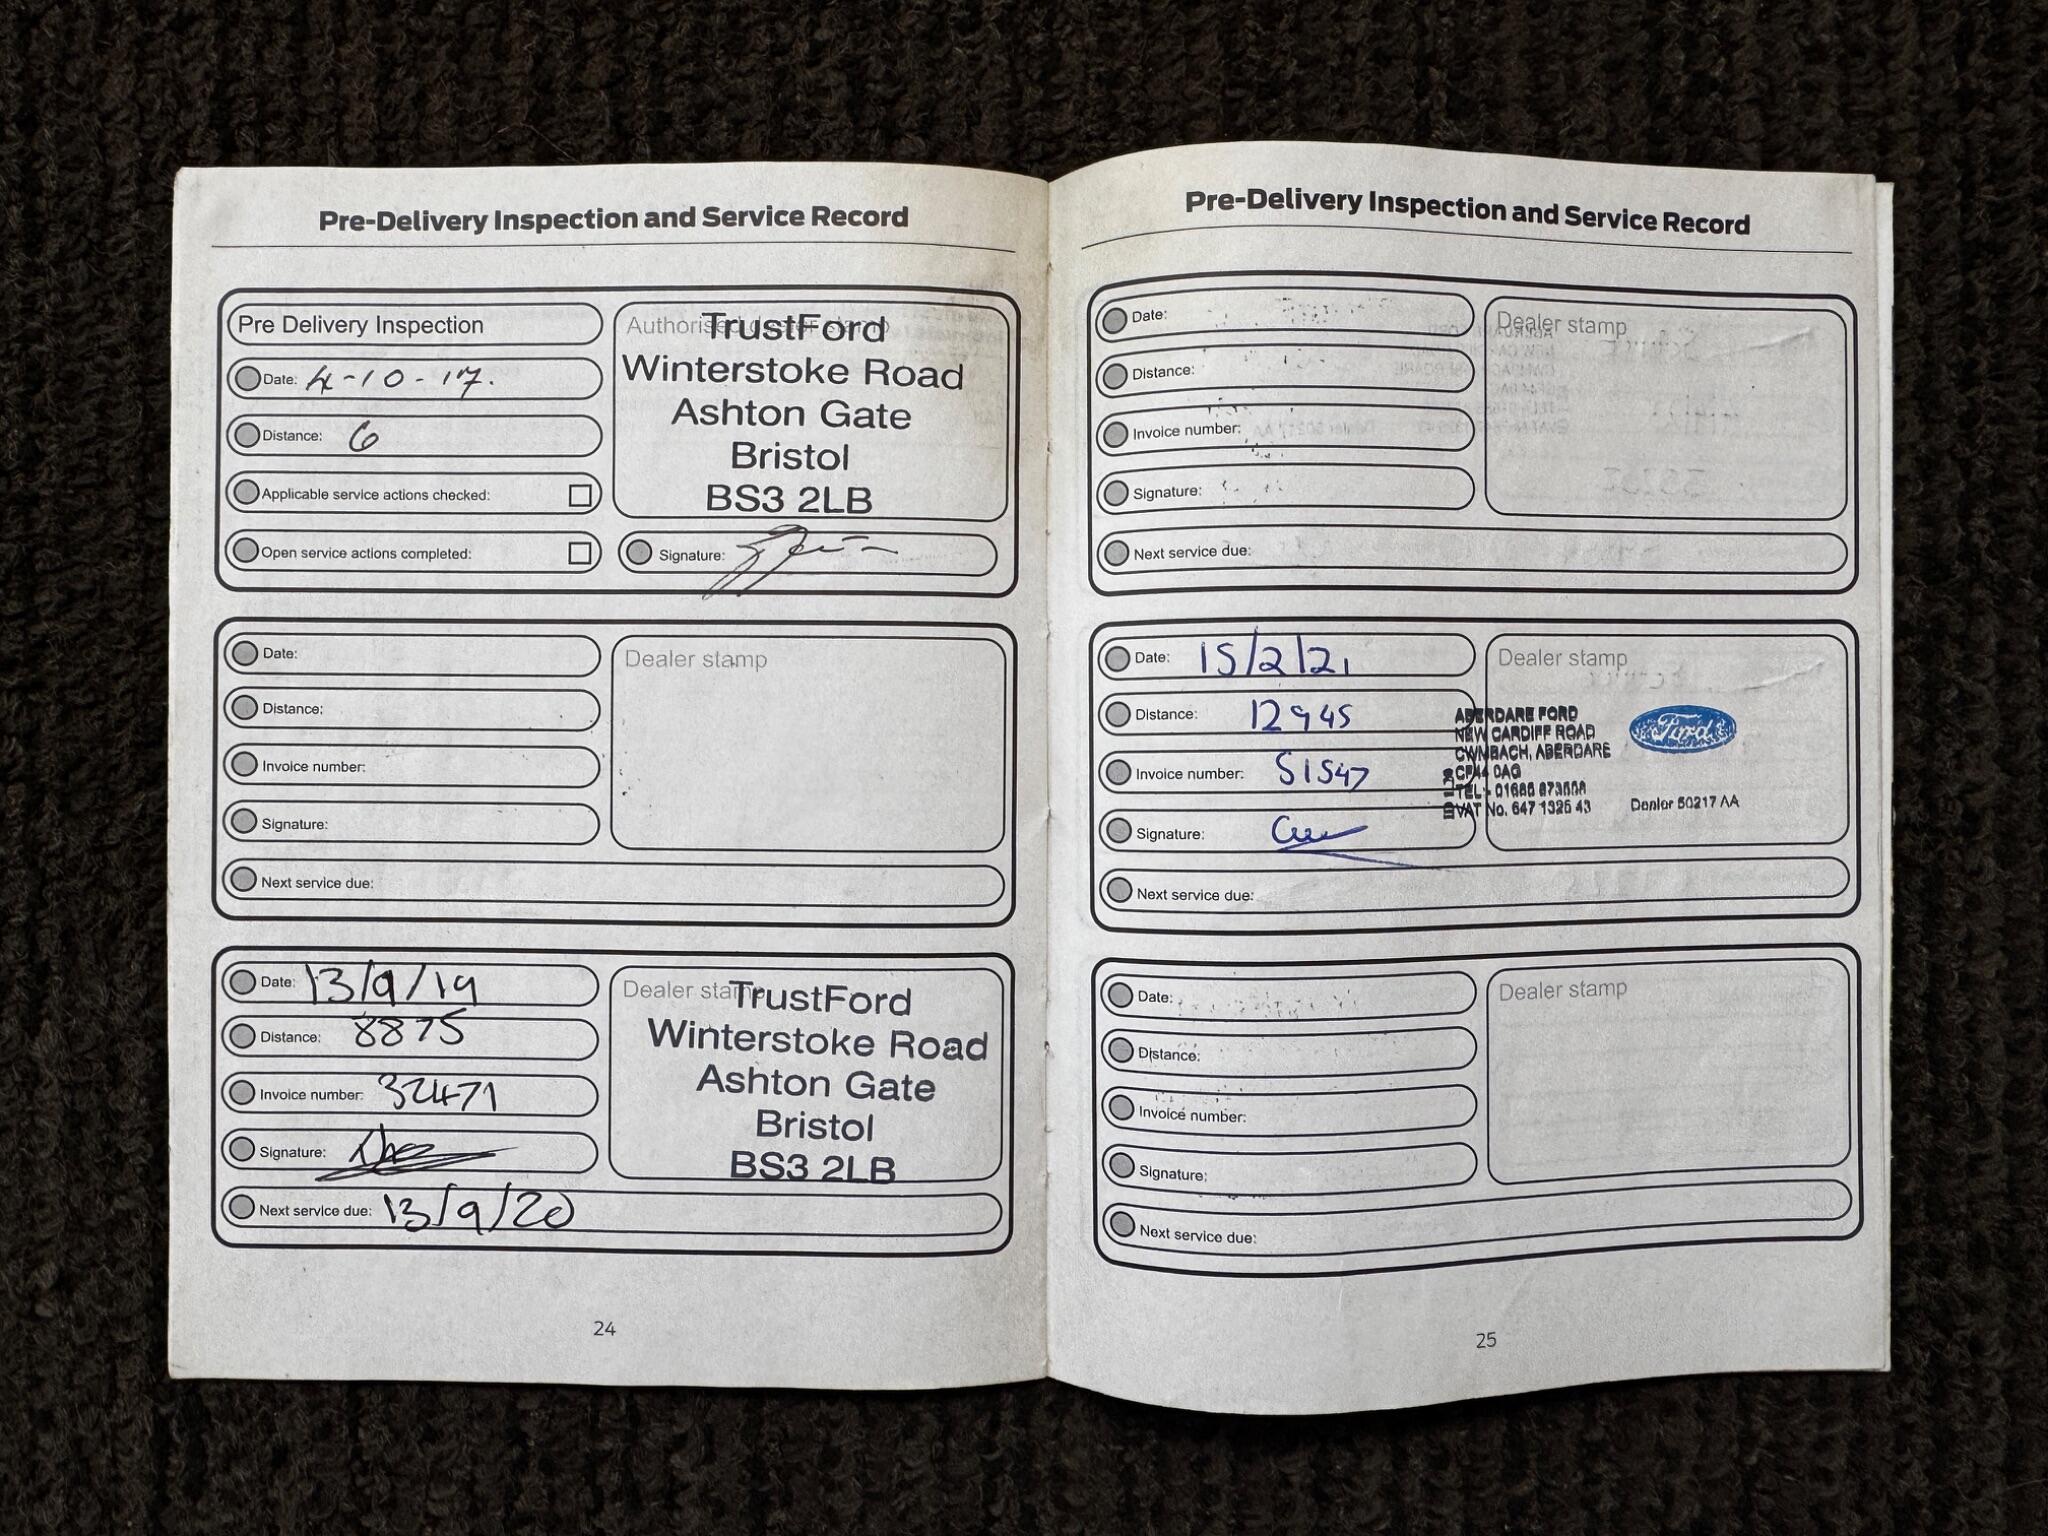 Pre-Delivery Inspection and Service Record
Pre Delivery Inspection
Date: 4-10-17.
Distance: 6
Applicable service actions checked:
Open service actions completed:
Authorised dealer stamp
TrustFord
Winterstoke Road
Ashton Gate
Bristol
BS3 2LB
Signature:
Date:
Distance:
Invoice number:
Signature:
Next service due:
Dealer stamp
Date: 13/9/19
Distance: 8875
Invoice number: 32471
Signature:
Next service due: 13/9/20
Dealer stamp
TrustFord
Winterstoke Road
Ashton Gate
Bristol
BS3 2LB
24
Pre-Delivery Inspection and Service Record
Date:
Distance:
Invoice number:
Signature:
Next service due:
Dealer stamp
Date: 15/2/21
Distance: 12945
Invoice number: 51547
Signature:
Next service due:
Dealer stamp
ABERDARE FORD
NEW CARDIFF ROAD
CWMBACH, ABERDARE
CF44 0AG
TEL:- 01685
VAT No. 647 1326 43
Ford
Dealer 50217 AA
Date:
Distance:
Invoice number:
Signature:
Next service due:
Dealer stamp
25